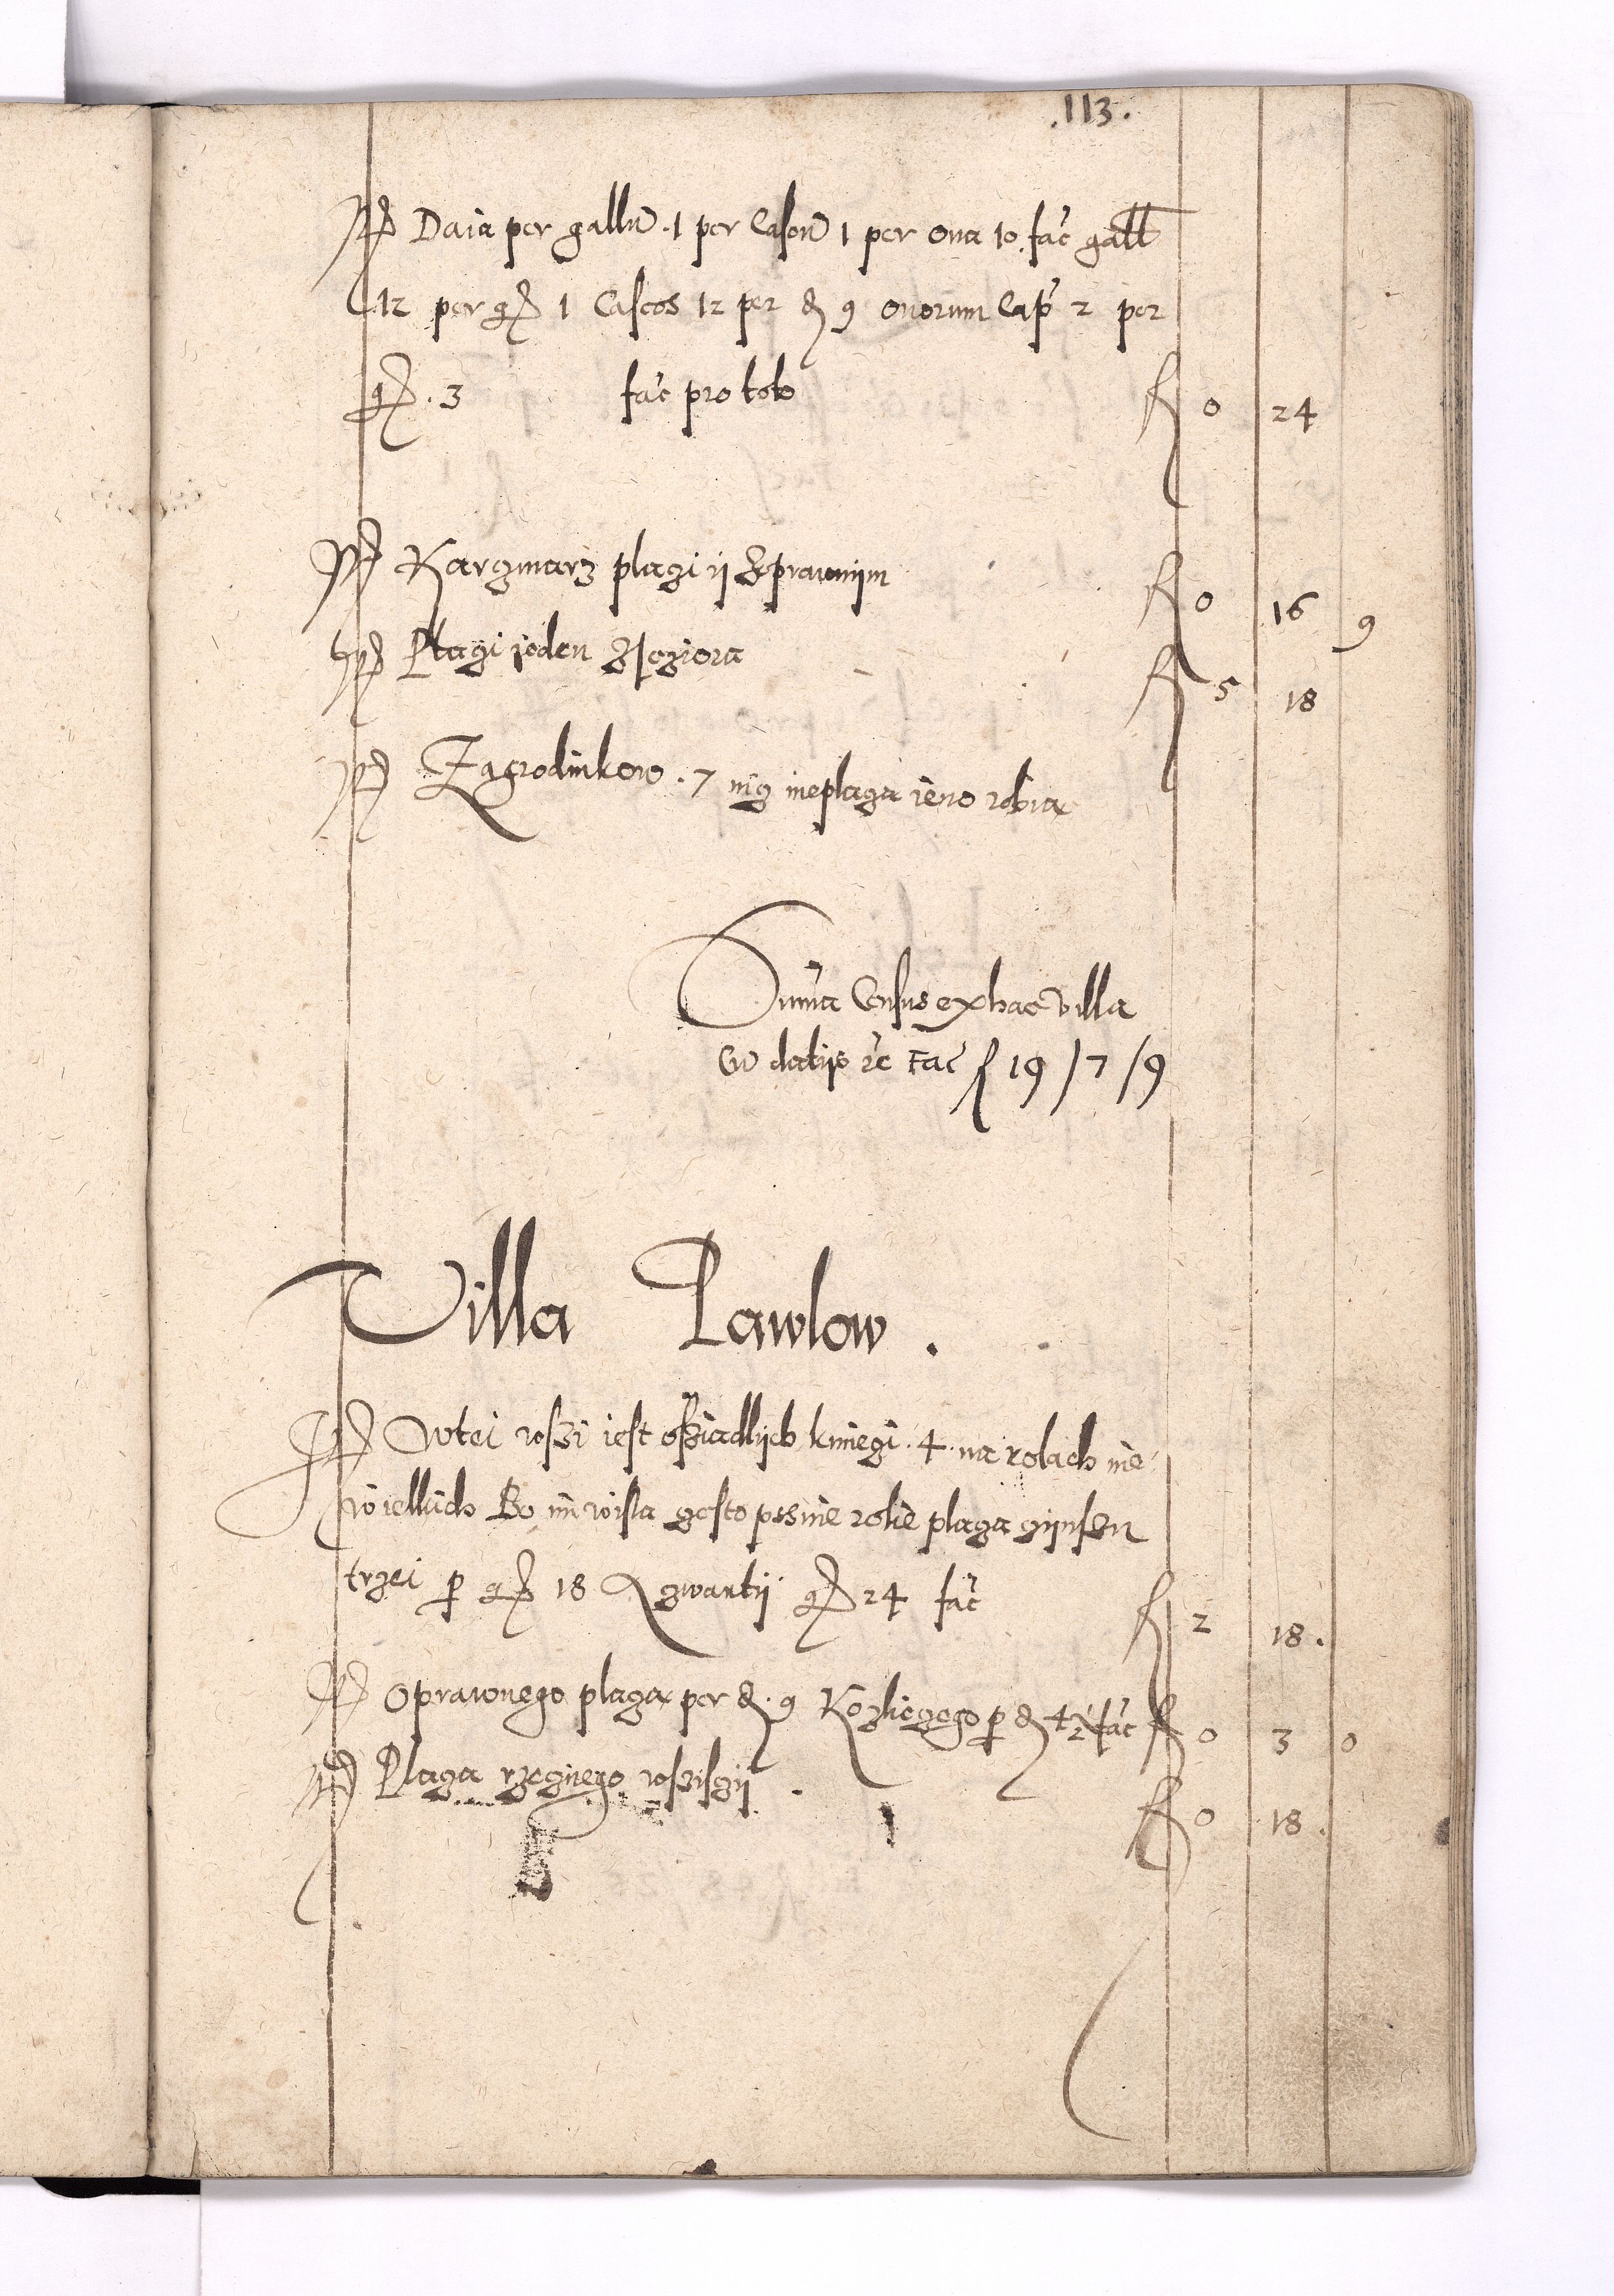 .113.
Itm̄ Daia per gallū 1 per Caseū 1 per oua 10 fac̄ gall
12 per gr̄ 1 Caseos 12 per d 9 ouorum Cap̄ 2 per
gr̄. 3 fac̄ pro toto fl 0 24
Itm̄ Kargmarz plagi ij Zprawnijm fl 0 16 9
Itm̄ Plagi ieden fl 5 18
Itm̄ Zagrodnikow . 7 nig nieplaga ieno robia
Suma Census ex hac villa
Cū datijs rc̄ Fac̄ fl 19 / 7 / 9
Villa Pawlow .
Itm̄ Wtei wsszi iest osziadlijch kmiegi . 4 . na rolach nie
wiellkich Bo im wisla gesto pssuie rolie plaga gijnssu
trzei p̄ gr̄ 18 A gwartij gr̄ 24 fac̄ fl 2 18 .
Itm̄ oprawnego plaga per d . 9 Kozliegego p̄ d 4 ½ fac̄ fl 0 3 0
Itm̄ Plaga rzegnego wszisgij . fl 0 18 .